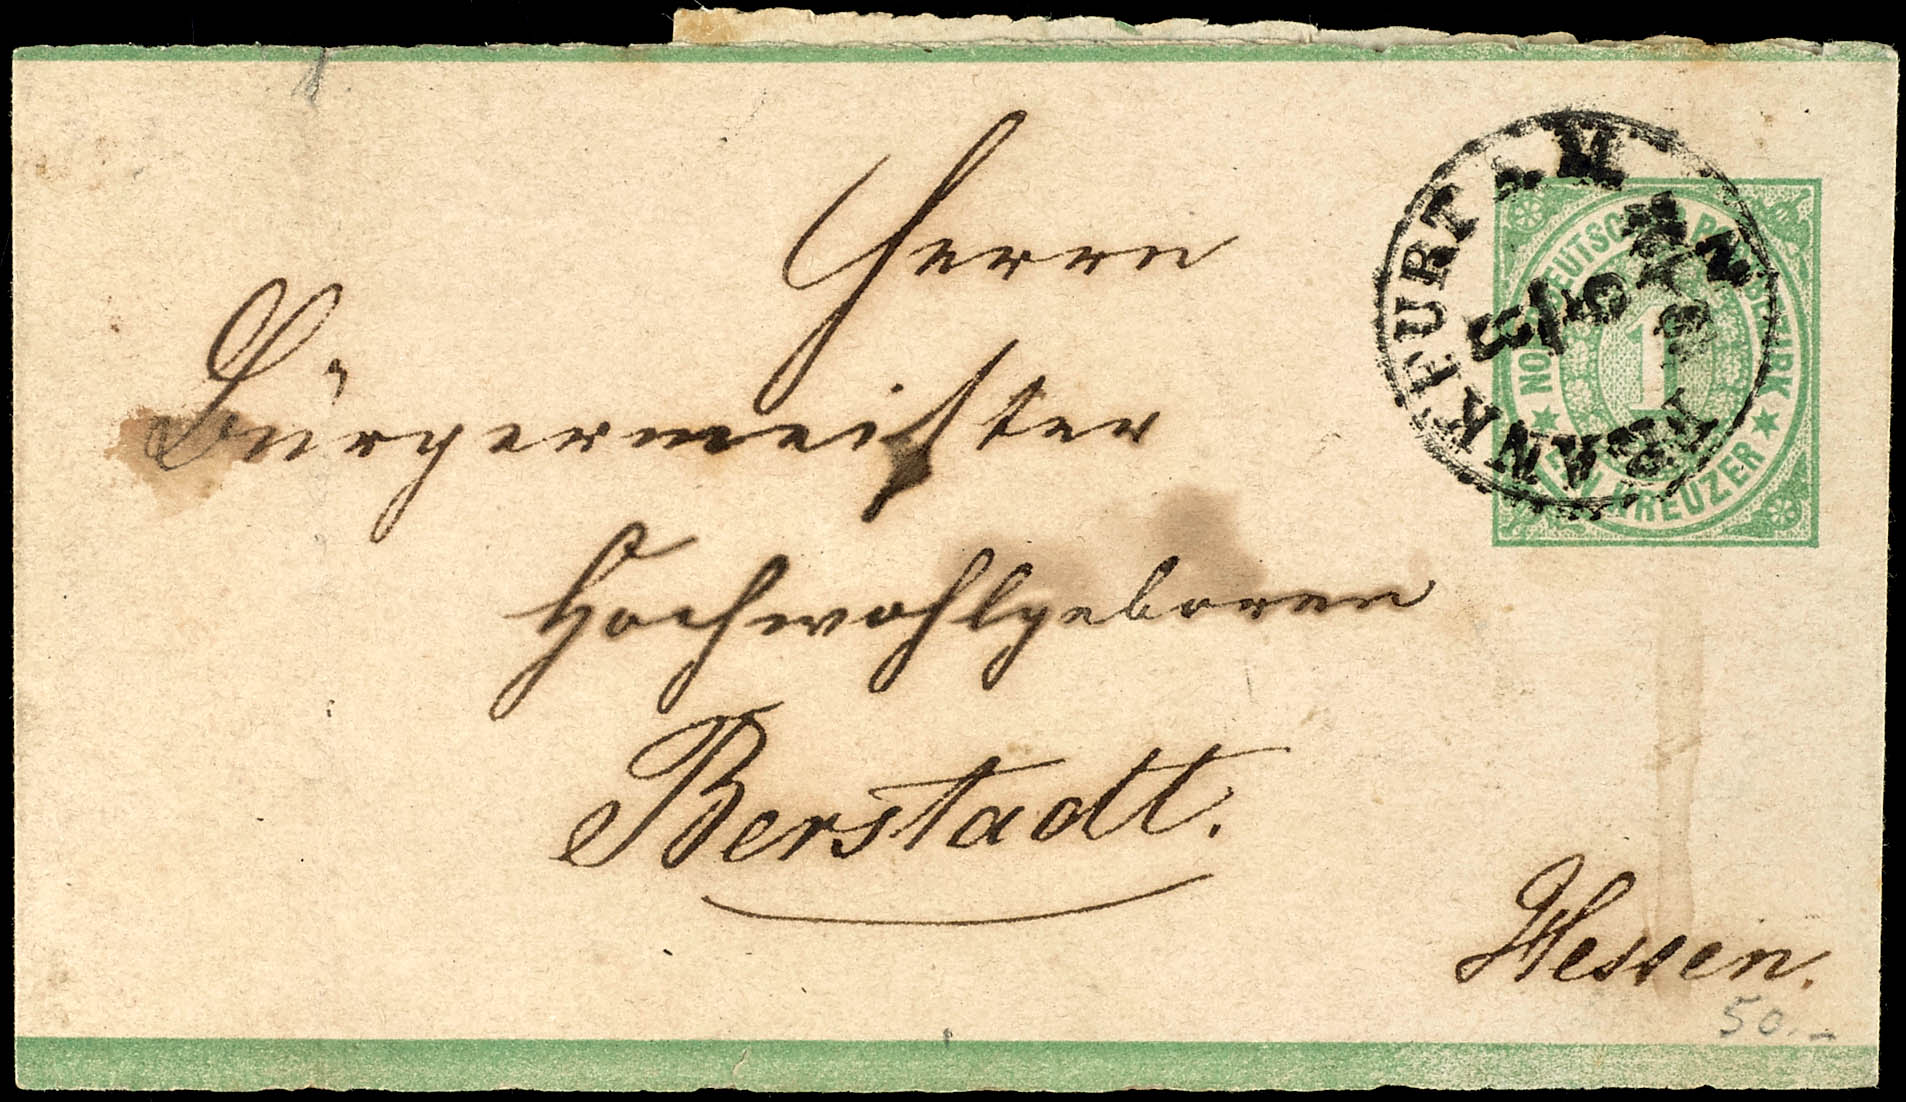 Herrn
Bürgermeister
Hochwohlgeboren
Berstadt.
Hessen.
50.–
FRANKFURT A M
NORDDEUTSCHER POSTBEZIRK
EIN KREUZER
1